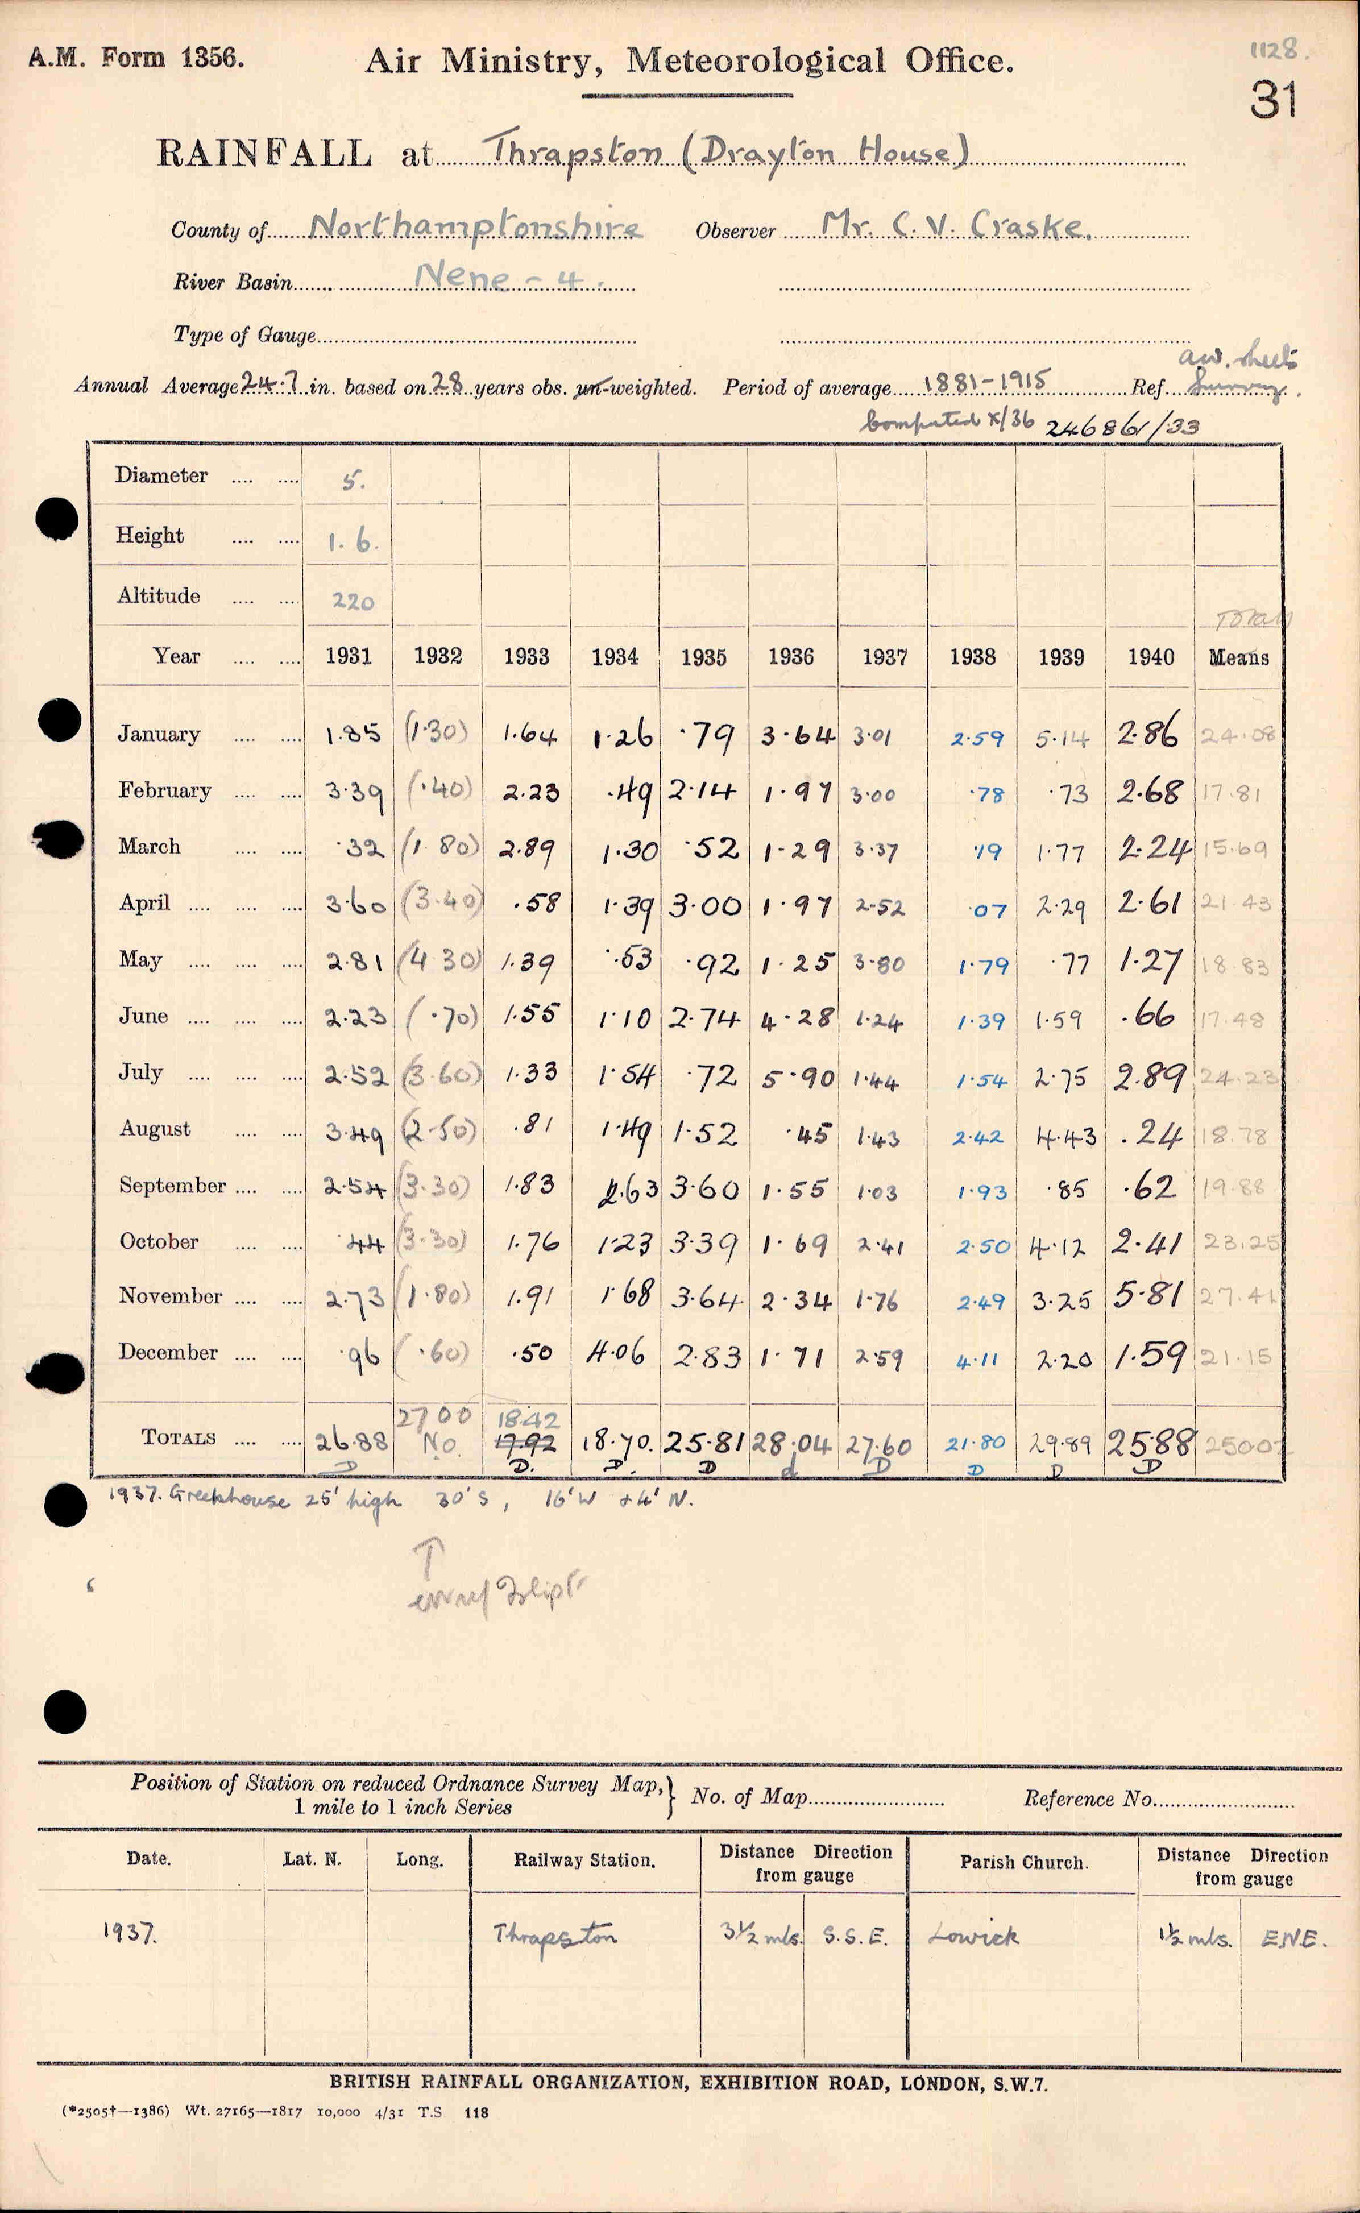 A.M. Form 1356.
Air Ministry, Meteorological Office.
1128.
31
RAINFALL at Thrapston (Drayton House)
County of Northamptonshire Observer Mr. C. V. Craske.
River Basin Nene - 4.
Type of Gauge
aw. sheets
Annual Average 24.7 in. based on 28 years obs. un-weighted. Period of average 1881-1915 Ref. Survey.
Computed x/36 246861/33
Diameter 5.
Height 1.6.
Altitude 220
Total
Year 1931 1932 1933 1934 1935 1936 1937 1938 1939 1940 Means
January 1.85 (1.30) 1.64 1.26 .79 3.64 3.01 2.59 5.14 2.86 24.08
February 3.39 (.40) 2.23 .49 2.14 1.97 3.00 .78 .73 2.68 17.81
March .32 (1.80) 2.89 1.30 .52 1.29 3.37 .19 1.77 2.24 15.69
April 3.60 (3.40) .58 1.39 3.00 1.97 2.52 .07 2.29 2.61 21.43
May 2.81 (4.30) 1.39 .53 .92 1.25 3.80 1.79 .77 1.27 18.83
June 2.23 (.70) 1.55 1.10 2.74 4.28 1.24 1.39 1.59 .66 17.48
July 2.52 (3.60) 1.33 1.54 .72 5.90 1.44 1.54 2.75 2.89 24.23
August 3.49 (2.50) .81 1.49 1.52 .45 1.43 2.42 4.43 .24 18.78
September 2.54 (3.30) 1.83 2.63 3.60 1.55 1.03 1.93 .85 .62 19.88
October .44 (3.30) 1.76 1.23 3.39 1.69 2.41 2.50 4.12 2.41 23.25
November 2.73 (1.80) 1.91 1.68 3.64 2.34 1.76 2.49 3.25 5.81 27.41
December .96 (.60) .50 4.06 2.83 1.71 2.59 4.11 2.20 1.59 21.15
27.00 18.42
TOTALS 26.88 No. 17.92 18.70. 25.81 28.04 27.60 21.80 29.89 25.88 250.02
D D. D. D d D D D D
1937. Greenhouse 25' high 30' S, 16' W + 4' N.
Position of Station on reduced Ordnance Survey Map,} No. of Map Reference No.
1 mile to 1 inch Series
Date. Lat. N. Long. Railway Station. Distance Direction from gauge Parish Church. Distance Direction from gauge
1937. Thrapston 3½ mls. S.S.E. Lowick 1½ mls. E.N.E.
BRITISH RAINFALL ORGANIZATION, EXHIBITION ROAD, LONDON, S.W.7.
(*2505†—1386) Wt. 27165—1817 10,000 4/31 T.S 118